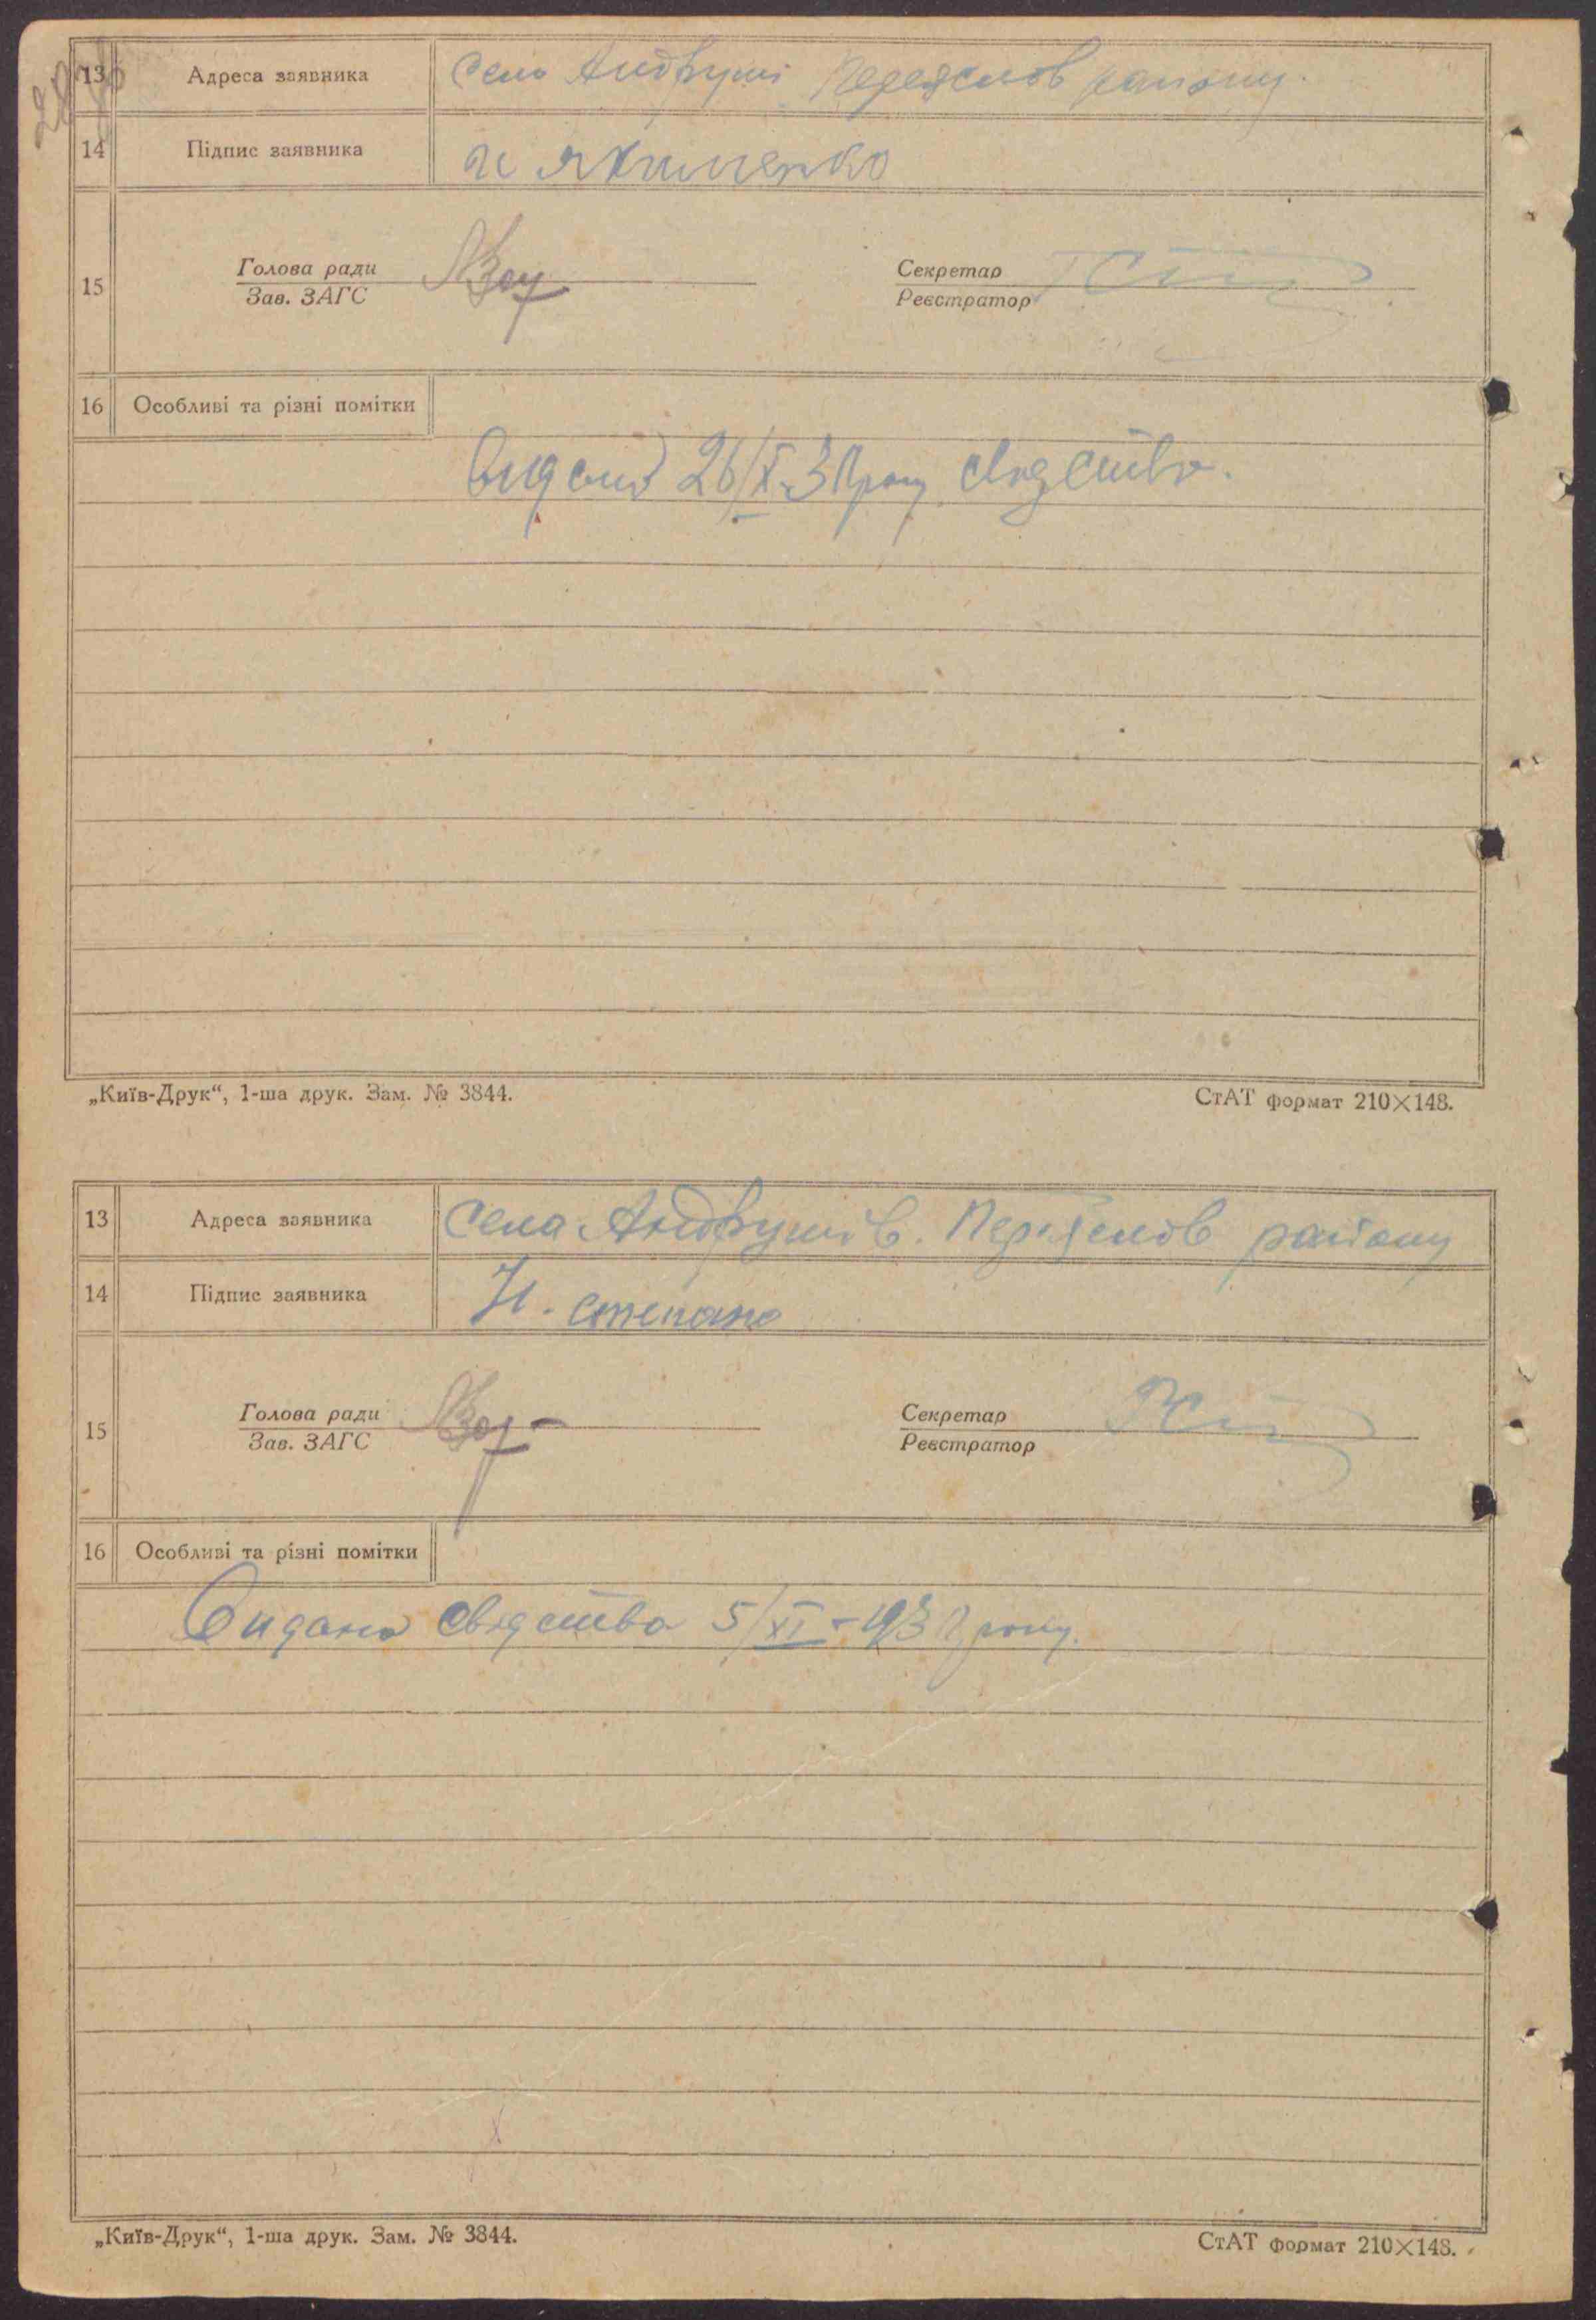 13 Адреса заявника Село Андруші Переяслов району.
14 Підпис заявника и Якименко
15 Голова ради Секретар
Зав. ЗАГС Реєстратор
16 Особливі та різні помітки
видано 26/X-32 року свідства.
„Київ-Друк“, 1-ша друк. Зам. № 3844. СтАТ формат 210×148.
13 Адреса заявника Села Андрушів. Переяслов району
14 Підпис заявника Н. степано
15 Голова ради Секретар
Зав. ЗАГС Реєстратор
16 Особливі та різні помітки
Видано свідства 5/XI-1932 року.
„Київ-Друк“, 1-ша друк. Зам. № 3844. СтАТ формат 210×148.